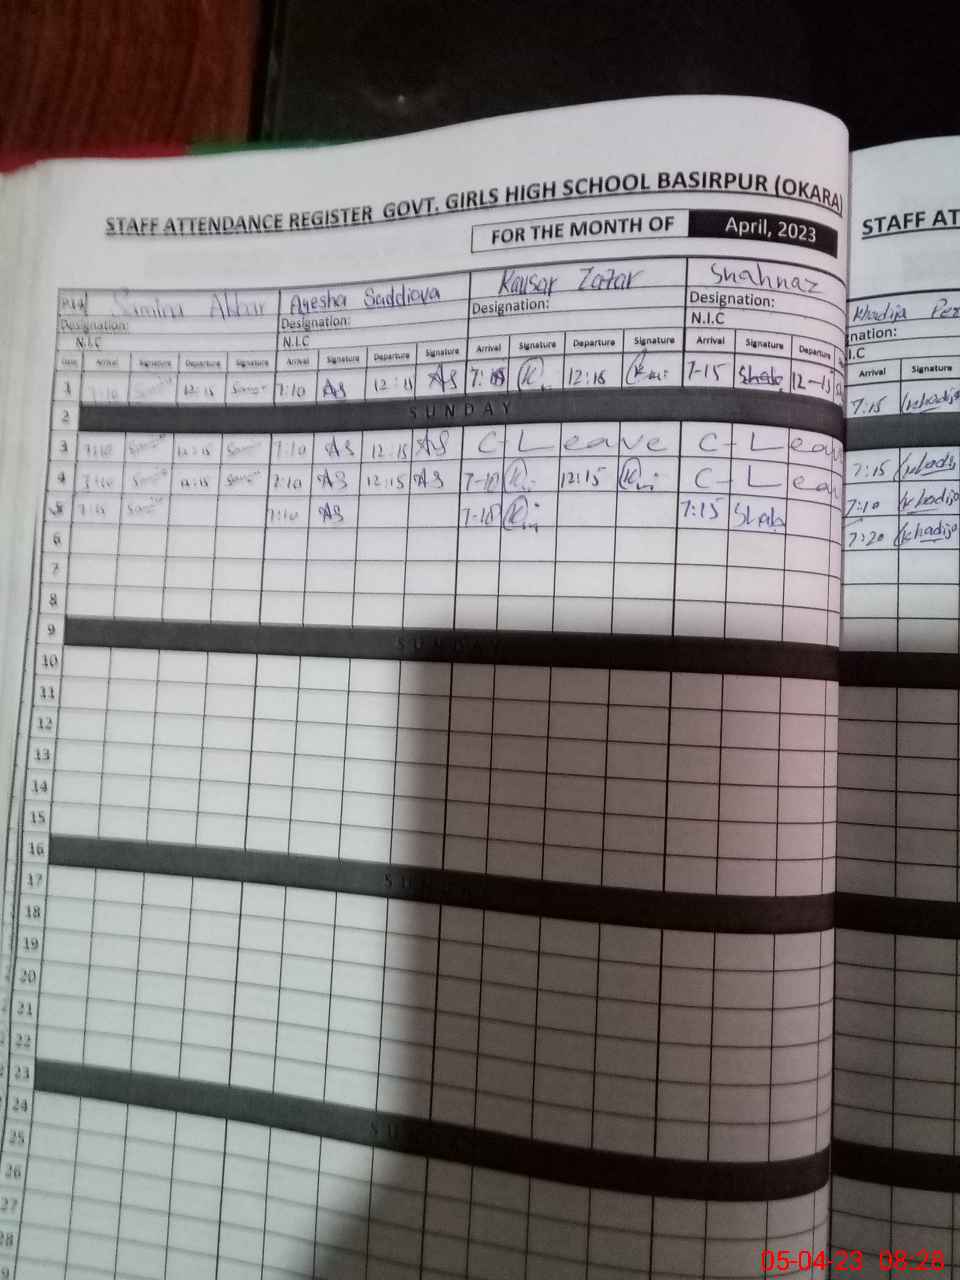 STAFF ATTENDANCE REGISTER GOVT. GIRLS HIGH SCHOOL BASIRPUR (OKARA)
STAFF AT
FOR THE MONTH OF April, 2023
Samina Akbar Ayesha Saddiqua Kausar Zafar Shahnaz Khadija Per
Designation: Designation: Designation: Designation: nation:
N.I.C N.I.C N.I.C I.C
Date Arrival Signature Departure Signature Arrival Signature Departure Signature Arrival Signature Departure Signature Arrival Signature Departure Arrival Signature
1 12:15 7:10 AS 12:15 AS 12:15 7-15 Shah 12-15 7:15 Khadija
2 SUNDAY
3 7:10 12:15 7:10 AS 12:15 AS C-Leave C-Leav 7:15 Khadij
4 7:10 12:15 7:10 AS 12:15 AS 7-10 K 12:15 K C-Lea 7:10 Khadija
5 7:15 7:10 AS 7-10 K 7:15 Shah 7:20 Khadija
6
7
8
9 SUNDAY
10
11
12
13
14
15
16 SUNDAY
17
18
19
20
21
22
23 SUNDAY
24
25
26
27
28
05-04-23 08:28